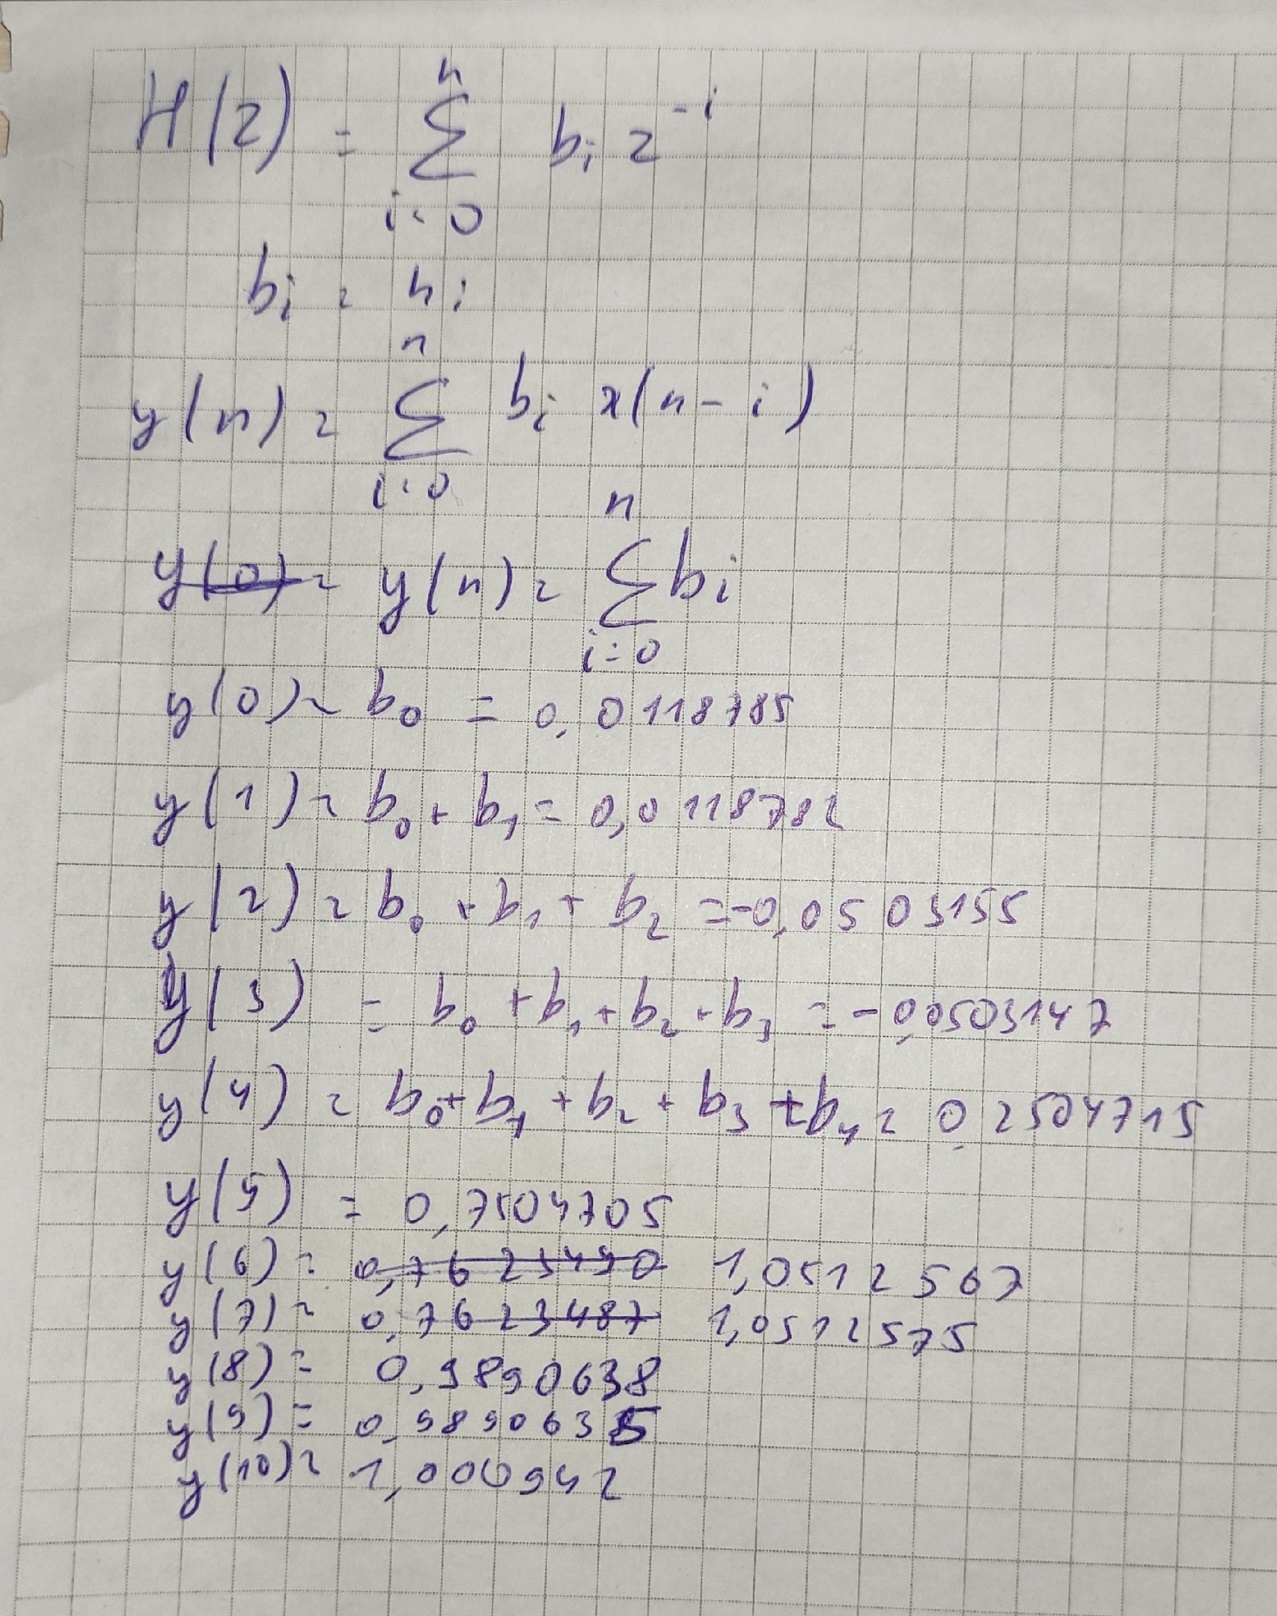 H(z) = n∑i=0 bi z^-i
bi = hi
y(n) = n∑i=0 bi x(n-i)
y(0) = y(n) = n∑i=0 bi
y(0) = b0 = 0,0118785
y(1) = b0 + b1 = 0,0118782
y(2) = b0 + b1 + b2 = -0,0503155
y(3) = b0 + b1 + b2 + b3 = -0,0503147
y(4) = b0 + b1 + b2 + b3 + b4 = 0,2504715
y(5) = 0,7504705
y(6) = 0,7623490 1,0512567
y(7) = 0,7623487 1,0512575
y(8) = 0,9890638
y(9) = 0,9890635
y(10) = 1,000942